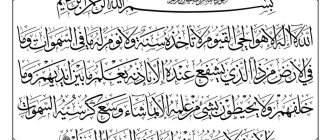 بسم الله الرحمن الرحيم
الله لا اله الا هو الحي القيوم لا تأخذه سنة ولا نوم له ما في السموات وما
في الارض من ذا الذي يشفع عنده الا باذنه يعلم ما بين ايديهم وما
خلفهم ولا يحيطون بشيء من علمه الا بما شاء وسع كرسيه السموات